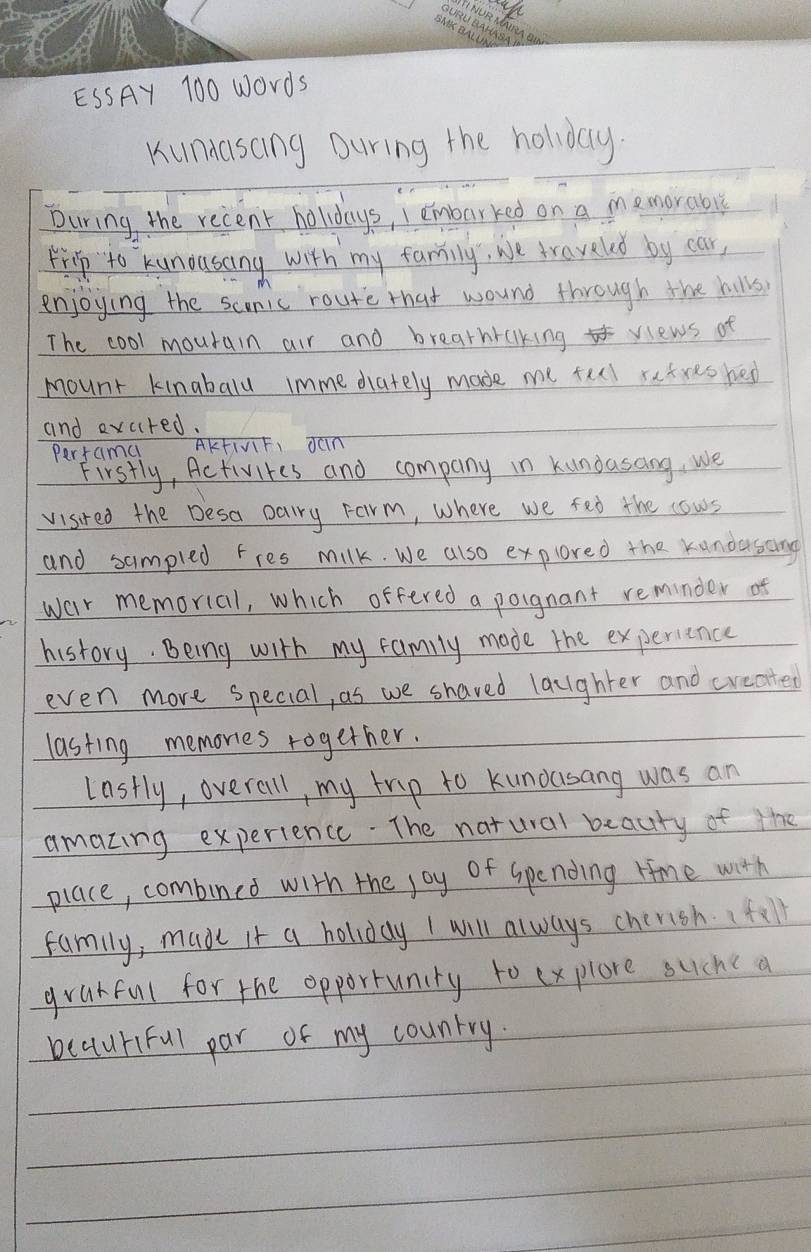 SITI NUR MAIRA BIN
GURU BAHASA
SMK BALUNG
ESSAY 100 Words
Kundasang During the holiday.
During the recent holidays, I embarked on a memorable
Trip to kundasang with my family. We traveled by car,
enjoying the scenic route that wound through the hills.
The cool moutain air and breathtaking views of
mount kinabalu immediately made me feel refreshed
and excited.
Pertama Aktiviti dan
Firstly, Activites and company in kundasang, we
visited the Desa Dairy Farm, where we fed the cows
and sampled Fres milk. We also explored the kundasang
war memorial, which offered a poignant reminder of
history. Being with my family made the experience
even more special, as we shared laughter and created
lasting memories together.
Lastly, overall, my trip to kundasang was an
amazing experience. The natural beauty of the
place, combined with the joy of spending time with
family, made it a holiday I will always cherish. i felt
gratful for the opportunity to explore suche a
beautiful par of my country.